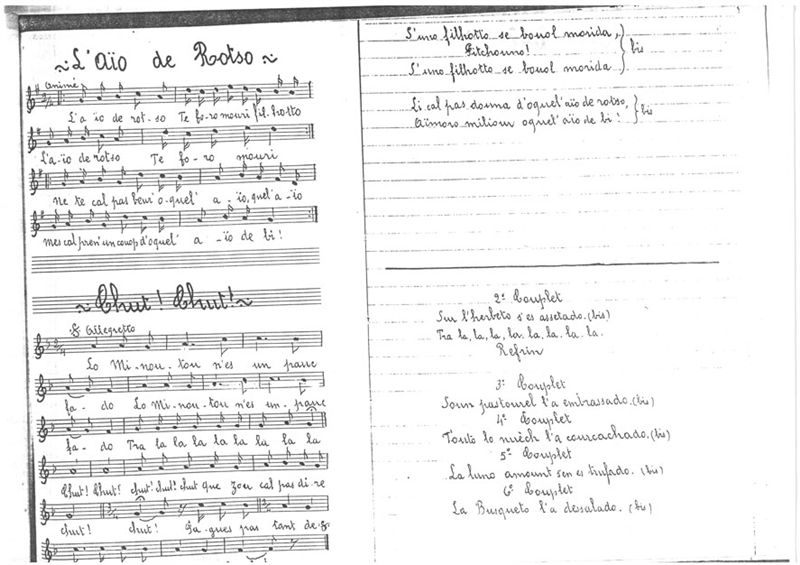 L'Aïo de Rotso
Animé
L'a ïo de rot-so Te fo-ro mouri fil-hotto
L'a-ïo de rotso Te fo-ro mouri
Ne te cal pas beui o-quel' a-ïo, quel'a-ïo
mes cal pren'un couop d'oquel' a-ïo de bi!
Chut! Chut!
Allegretto
Lo Mi-nou-tou n'es un pauc
fa-do Lo Mi-nou-tou n'es un-pauc
fa-do Tra la la la la la la la la
Chut! Chut! chut! chut! chut que zou cal pas di-re
chut! chut! Fa-gues pas tant de
S'uno filhotto se bouol morida,
Pitchouno! bis
S'uno filhotto se bouol morida
Li cal pas douna d'oquel'aïo de rotso,
Aïmoro miliou oquel'aïo de bi! bis
2e Couplet
Sur l'herbeto s'es assetado. (bis)
Tra la, la, la, la, la, la, la. la.
Refrin
3e Couplet
Soun pastourel l'a embrassado. (bis)
4e Couplet
Touto lo nuèch l'a courcachado. (bis)
5e Couplet
La luno amount s'en es trufado. (bis)
6e Couplet
La Busqueto l'a dessalado. (bis)